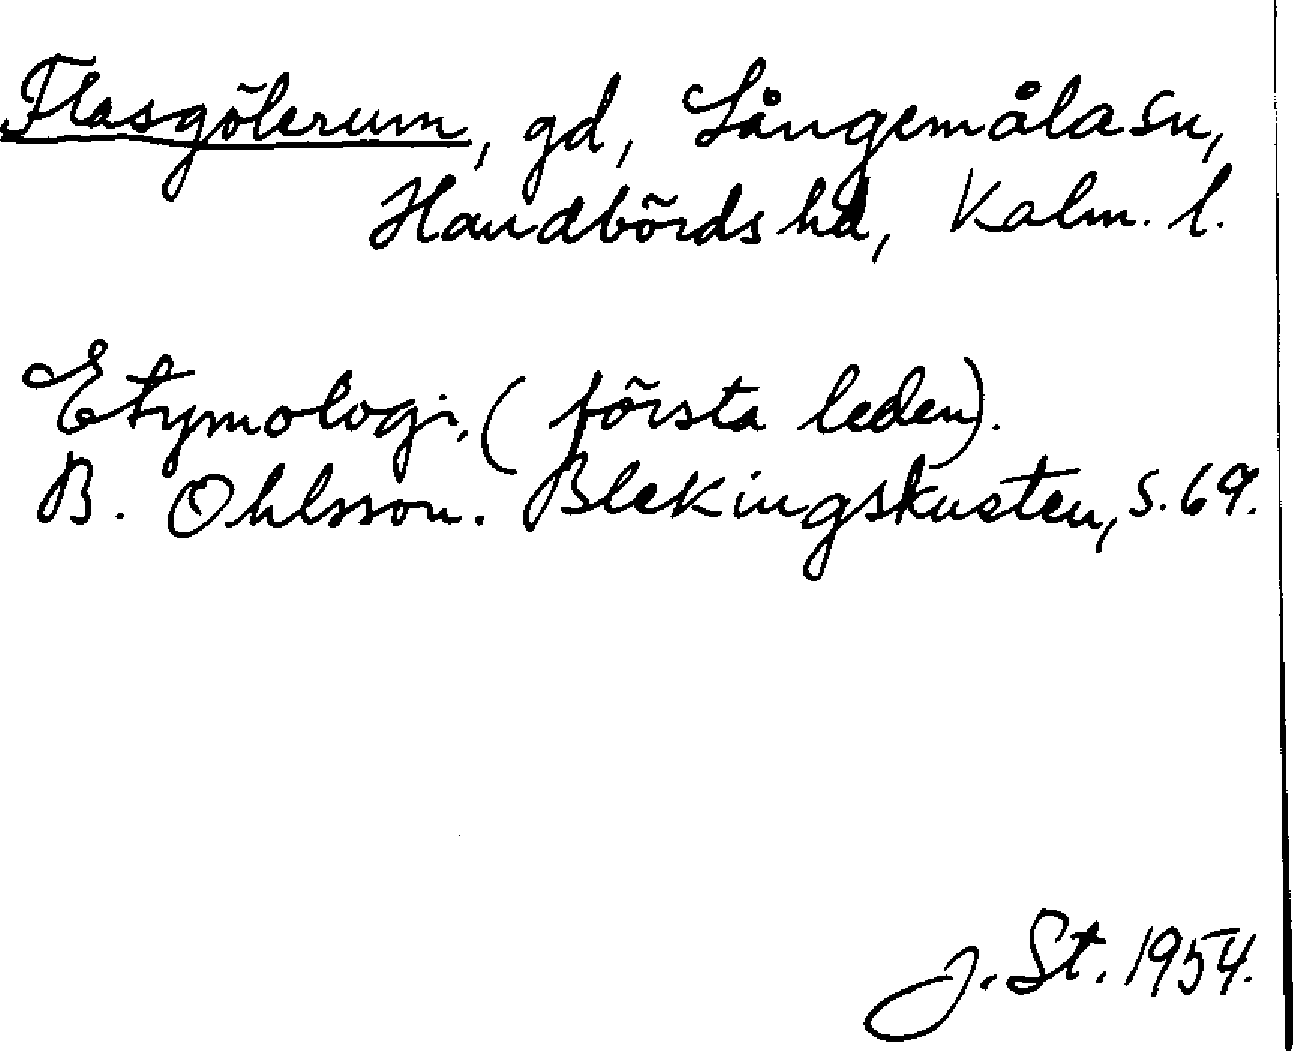 Flasgölerum, gd, Långemåla sn,
Handbörds hd, Kalm. l.
Etymologi. (första leden).
B. Ohlsson. Blekingskusten, s. 69.
J. St. 1954.